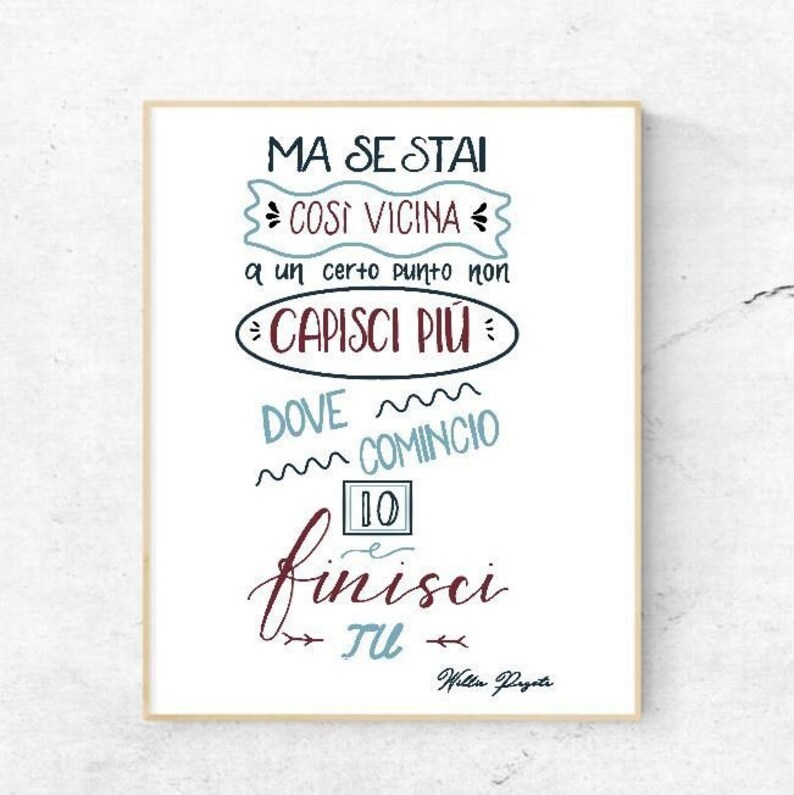 MA SE STAI
COSÌ VICINA
a un certo punto non
CAPISCI PIÚ
DOVE
COMINCIO
IO
e
finisci
TU
Willie Peyote